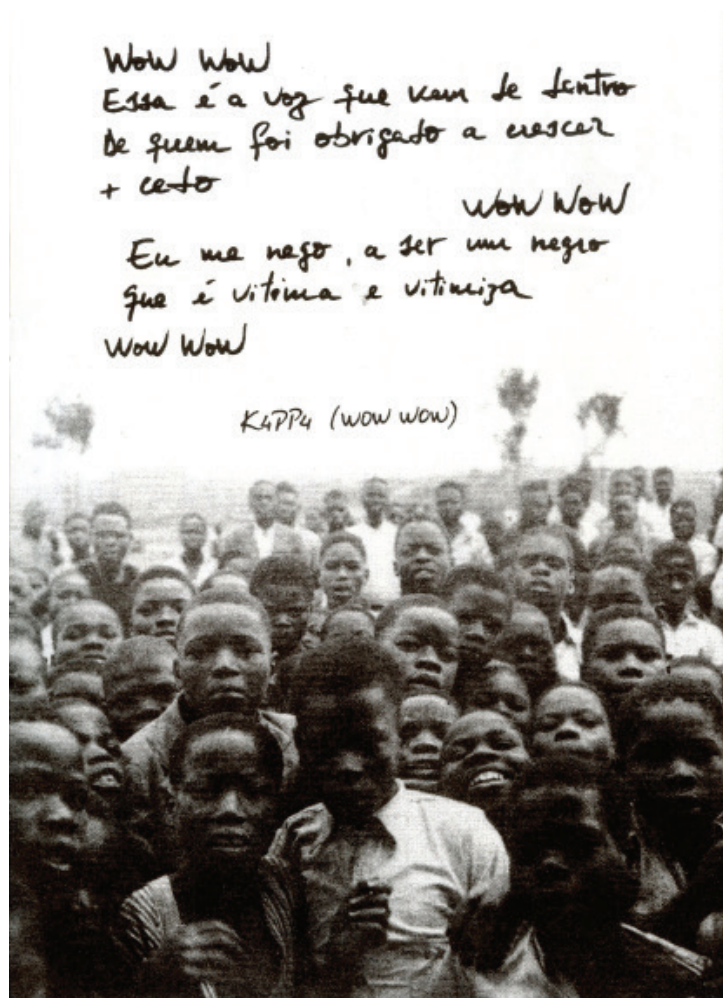 WOW WOW
Essa é a voz que vem de dentro
De quem foi obrigado a crescer
+ cedo
WOW WOW
Eu me nego, a ser um negro
que é vitima e vitimiza
WOW WOW
K4PP4 (WOW WOW)